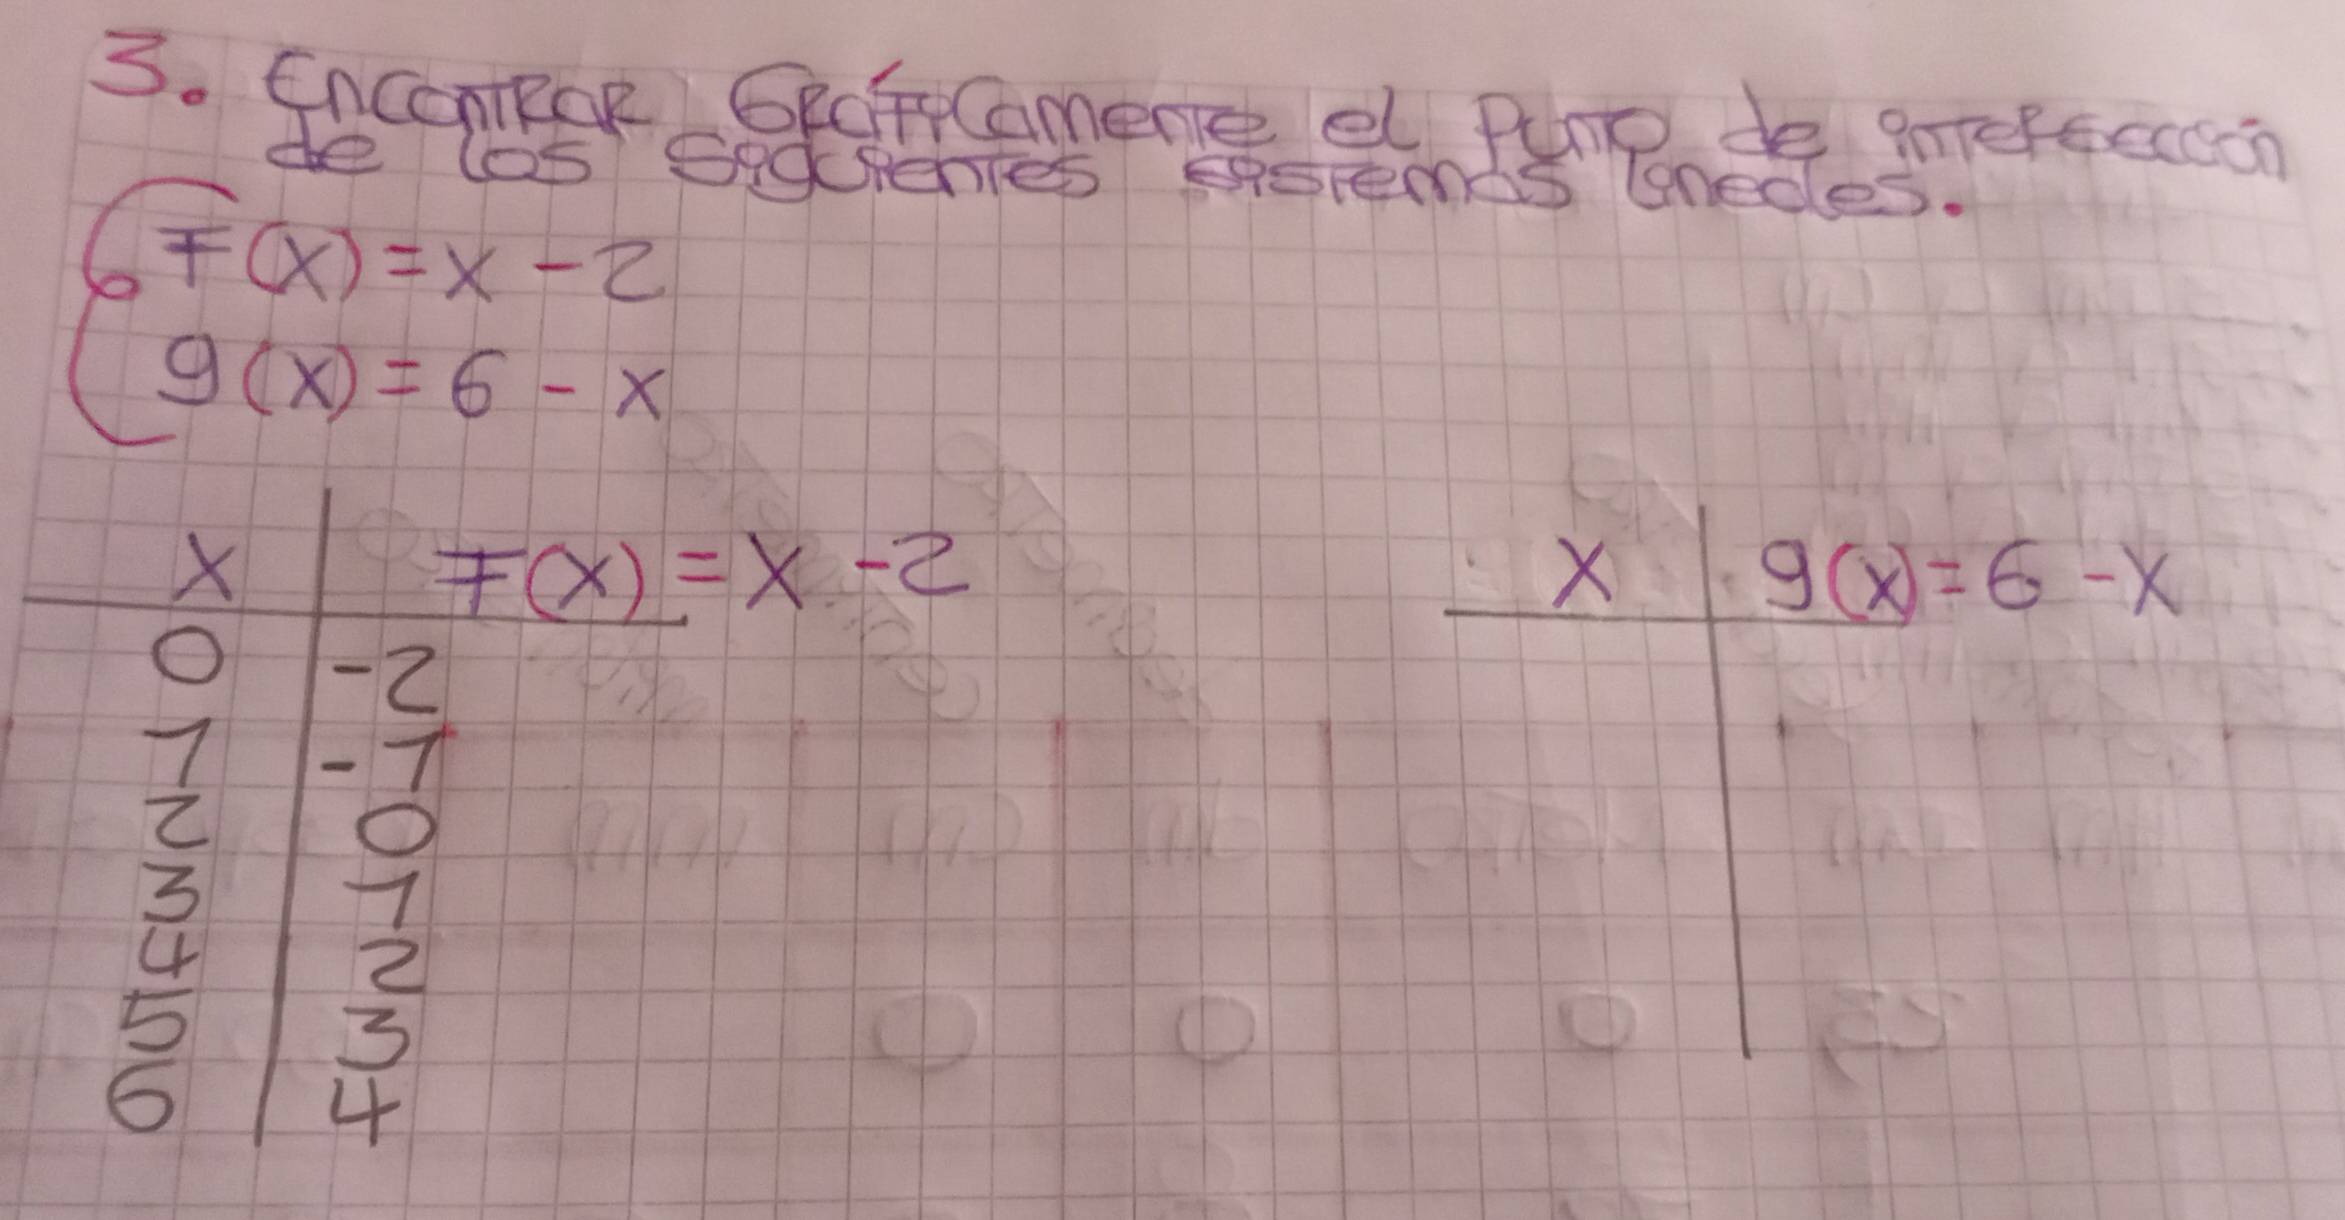 3. Encontrar Gráficamente el punto de intersección
de los siguientes sistemas lineales.
F(x) = x - 2
g(x) = 6 - x
x F(x) = x - 2
0 -2
1 -1
2 0
3 1
4 2
5 3
6 4
x g(x) = 6 - x